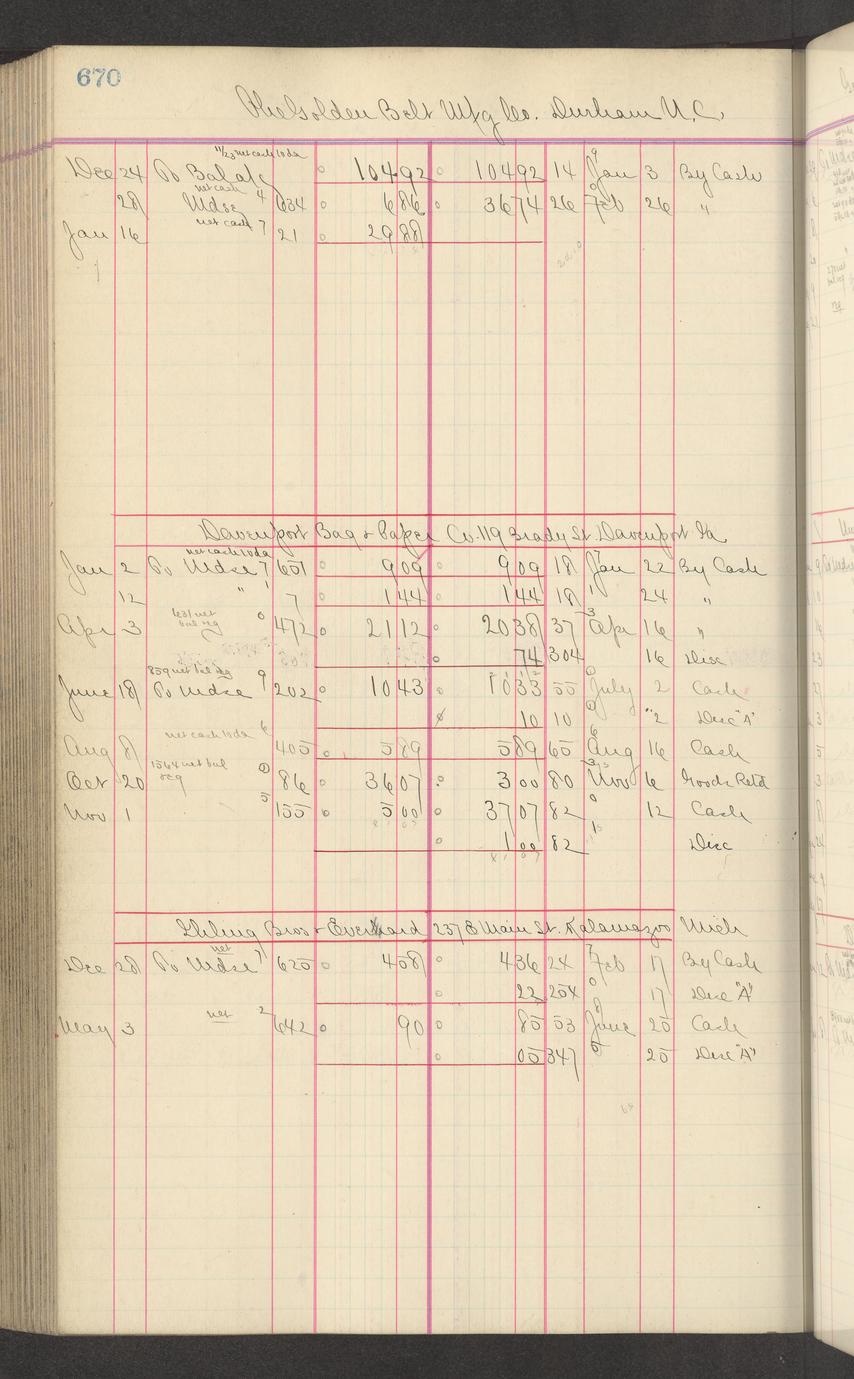 670
The Golden Belt Mfg Co. Durham N.C.
11/23 net cash 10 da
Dec 24 To Balance 104 92 104 92 14 Jan 3 By Cash
net cash 4
28 Mdse 634 6 86 36 74 26 Feb 26 "
net cash 7
Jan 16 21 29 88
Davenport Bag & Paper Co. 119 Brady St. Davenport Ia
net cash 10 da
Jan 2 To Mdse 7 651 9 09 9 09 18 Jan 22 By Cash
12 " 7 1 44 1 44 18 24 "
Apr 3 472 21 12 20 38 37 Apr 16 "
74 304 16 Disc
859 net bal reg
June 18 To Mdse 9 202 10 43 10 33 55 July 2 Cash
10 10 " 2 Disc "A"
net cash 10 da 6
Aug 8 405 5 89 5 89 65 Aug 16 Cash
1544 net bal
Oct 20 86 36 07 3 00 80 Nov 6 Goods Retd
Nov 1 5 155 5 00 37 07 82 12 Cash
1 00 82 Disc
Ihling Bros & Everhard 237 E Main St. Kalamazoo Mich
net
Dec 28 To Mdse 625 4 58 4 36 24 Feb 17 By Cash
22 254 17 Disc "A"
May 3 net 2 642 90 85 53 June 25 Cash
05 347 25 Disc "A"